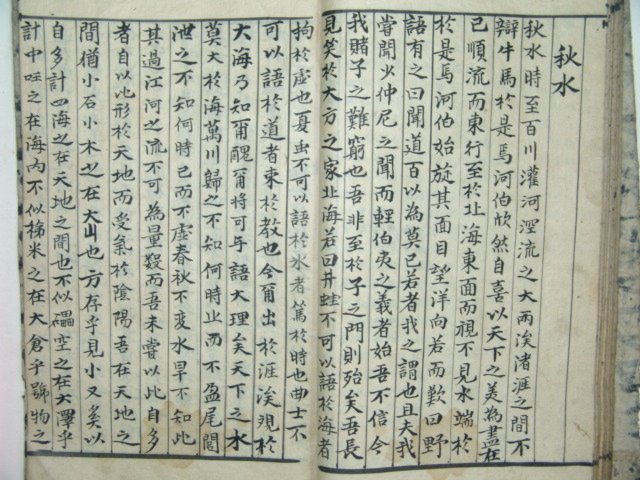 秋水
秋水時至百川灌河涇流之大兩涘渚涯之間不
辯牛馬於是焉河伯欣然自喜以天下之美為盡在
己順流而東行至於北海東面而視不見水端於
於是焉河伯始旋其面目望洋向若而歎曰野
語有之曰聞道百以為莫已若者我之謂也且夫我
嘗聞少仲尼之聞而輕伯夷之義者始吾不信今
我睹子之難窮也吾非至於子之門則殆矣吾長
見笑於大方之家北海若曰井蛙不可以語於海者
拘於虛也夏虫不可以語於氷者篤於時也曲士不
可以語於道者束於教也今爾出於涯涘觀於
大海乃知爾醜爾將可与語大理矣天下之水
莫大於海萬川歸之不知何時止而不盈尾閭
泄之不知何時已而不虛春秋不変水旱不知此
其過江河之流不可為量数而吾未嘗以此自多
者自以比形於天地而受氣於陰陽吾在天地之
間猶小石小木之在大山也方存乎見小又奚以
自多計四海之在天地之間也不似礨空之在大澤乎
計中国之在海內不似稊米之在大倉乎號物之